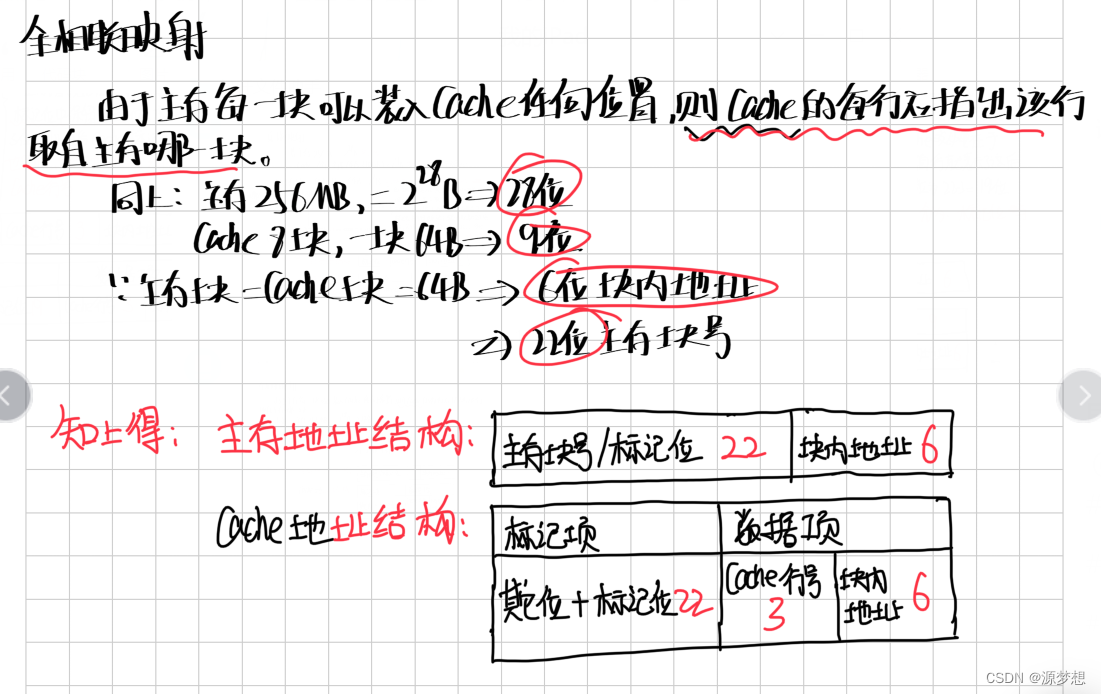 全相联映射
由于主存每一块可以装入Cache任何位置,则Cache的每行应指出该行
取自主存哪一块。
同上:主存256MB,=2^28B⇒28位
Cache 8块,一块64B⇒9位.
∵主存块=Cache块=64B⇒6位块内地址
⇒22位主存块号
知上得:主存地址结构:
主存块号/标记位 22 块内地址 6
Cache地址结构:
标记项 数据项
其它位+标记位22 Cache行号 3 块内地址 6
CSDN @源梦想